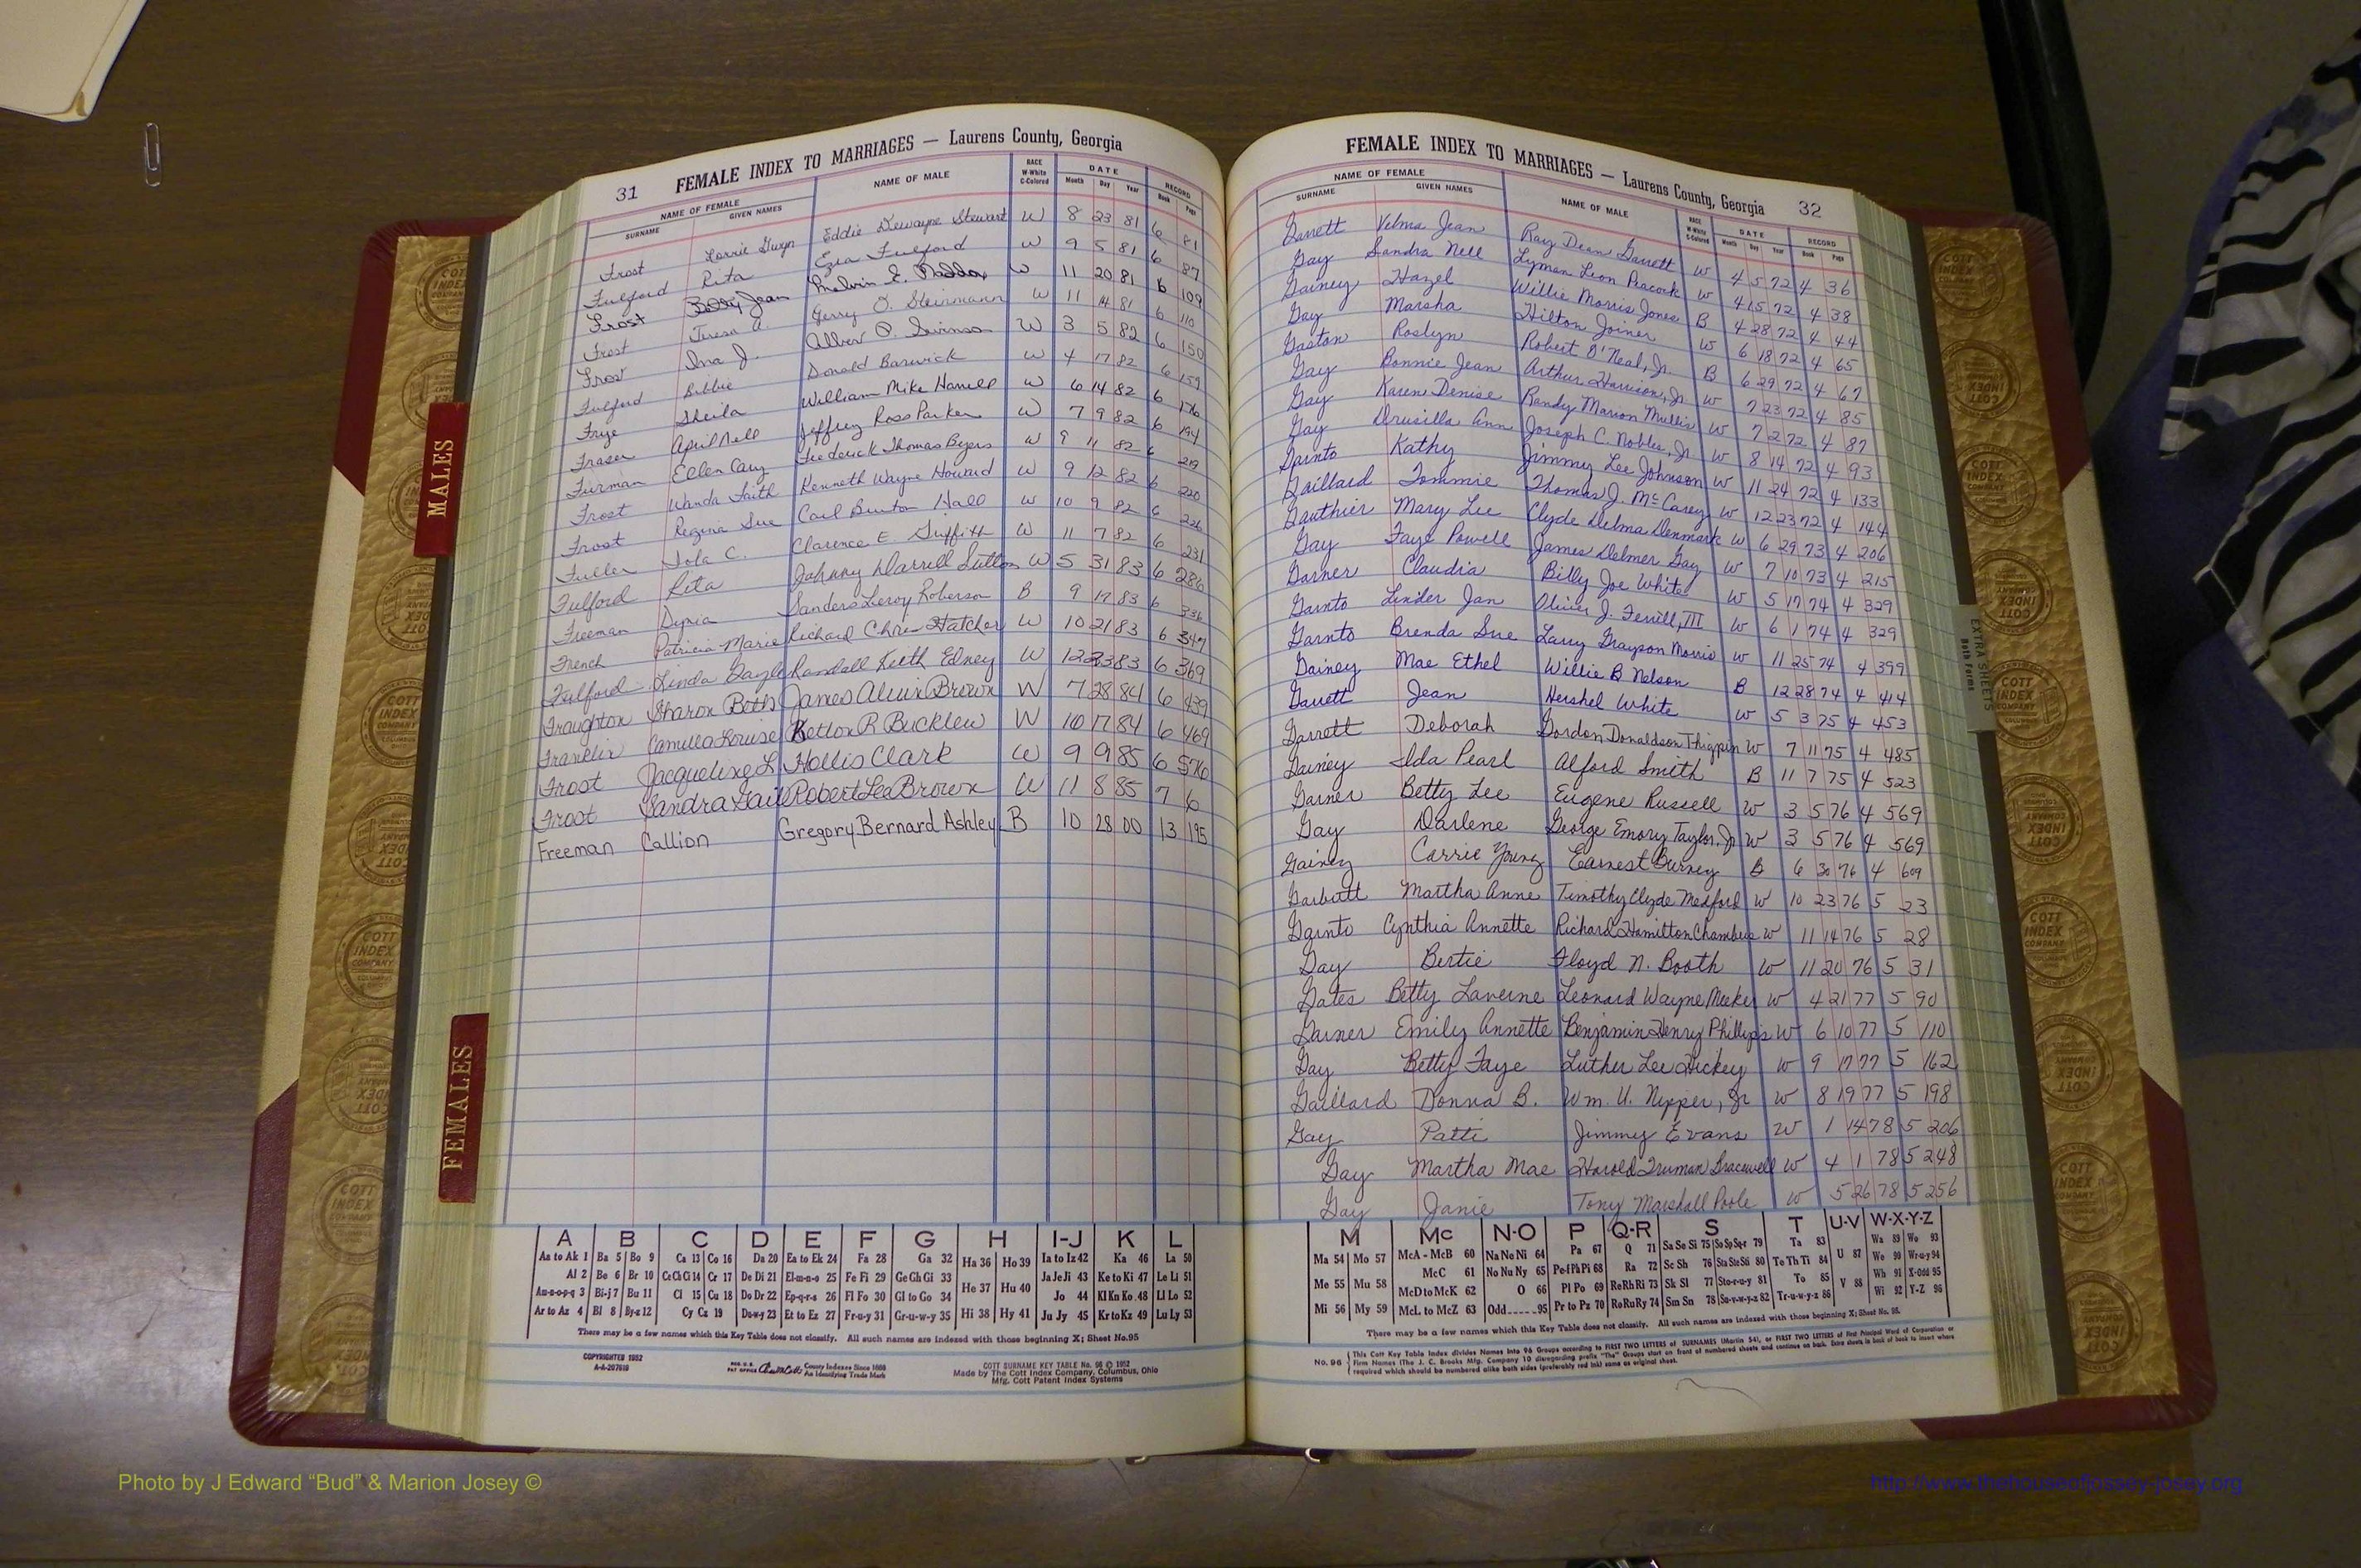 31 FEMALE INDEX TO MARRIAGES — Laurens County, Georgia
NAME OF FEMALE NAME OF MALE RACE W-White C-Colored DATE RECORD
SURNAME GIVEN NAMES Month Day Year Book Page
Frost Lorrie Gwyn Eddie Dewayne Stewart W 8 23 81 6 81
Fulford Rita Ezra Fulford W 9 5 81 6 87
Frost Betty Jean Melvin E. Maddox W 11 20 81 6 109
Frost Teresa A. Gerry O. Steinmann W 11 14 81 6 110
Frost Ina J. W 3 5 82 6 150
Fulford Bobbie Donald Barwick W 4 17 82 6 159
Frye Sheila William Mike Harrell W 6 14 82 6 176
Fraser April Nell Jeffrey Ross Parker W 7 9 82 6 194
Furman Ellen Cary Frederick Thomas Byers W 9 11 82 6 219
Frost Wanda Faith Kenneth Wayne Howard W 9 12 82 6 220
Frost Regina Sue Carl Burton Hall W 10 9 82 6 226
Fuller Iola C. Clarence E Griffith W 11 7 82 6 231
Fulford Rita Johnny Darrell Sutton W 5 31 83 6 286
Freeman Sanders Leroy Roberson B 9 17 83 6 336
French Patricia Marie Richard Chris Hatcher W 10 21 83 6 347
Fulford Linda Gayle Randall Keith Edney W 12 23 83 6 369
Fraughton Sharon Beth James Alvin Brown W 7 28 84 6 439
Franklin Camilla Louise Kelton R Bicklew W 10 17 84 6 469
Frost Jacqueline L Hollis Clark W 9 9 85 6 576
Frost Sandra Gail Robert Lee Brown W 11 8 85 7 6
Freeman Callion Gregory Bernard Ashley B 10 28 00 13 195
A B C D E F G H I-J K L
Aa to Ak 1 Ba 5 Bo 9 Ca 13 Co 16 Da 20 Ea to Ek 24 Fa 28 Ga 32 Ha 36 Ho 39 Ia to Iz 42 Ka 46 La 50
Al 2 Be 6 Br 10 Ce Ch Ci 14 Cr 17 De Di 21 El-m-n-o 25 Fe Fi 29 Ge Gh Gi 33 He 37 Hu 40 Ja Je Ji 43 Ke to Ki 47 Le Li 51
Am-n-o-p-q 3 Bi-j 7 Bu 11 Cl 15 Cu 18 Do Dr 22 Ep-q-r-s 26 Fl Fo 30 Gl to Go 34 Jo 44 Kl Kn Ko 48 Ll Lo 52
Ar to Az 4 Bl 8 By-z 12 Cy Cz 19 Du-w-y 23 Et to Ez 27 Fr-u-y 31 Gr-u-w-y 35 Hi 38 Hy 41 Ju Jy 45 Kr to Kz 49 Lu Ly 53
There may be a few names which this Key Table does not classify. All such names are indexed with those beginning X; Sheet No.95
COPYRIGHTED 1952
A-A-207619
REG. U.S. PAT OFFICE County Indexes Since 1888
An Identifying Trade Mark
COTT SURNAME KEY TABLE No. 96 © 1952
Made by The Cott Index Company, Columbus, Ohio
Mfg. Cott Patent Index Systems
FEMALE INDEX TO MARRIAGES — Laurens County, Georgia 32
NAME OF FEMALE NAME OF MALE RACE W-White C-Colored DATE RECORD
SURNAME GIVEN NAMES Month Day Year Book Page
Garrett Velma Jean Ray Dean Garrett W 4 5 72 4 36
Gay Sandra Nell Lyman Leon Peacock W 4 15 72 4 38
Gainey Hazel Willie Morris Jones B 4 28 72 4 44
Gay Marsha Hilton Joiner W 6 18 72 4 65
Gaston Roslyn Robert O'Neal, Jr. B 6 29 72 4 67
Gay Bonnie Jean Arthur Harrison, Jr W 7 23 72 4 85
Gay Karen Denise Randy Marion Mullis W 7 2 72 4 87
Gay Drusilla Ann Joseph C. Nobles, Jr W 8 14 72 4 93
Garnto Kathy Jimmy Lee Johnson W 11 24 72 4 133
Gaillard Tommie Thomas J. McCarey W 12 23 72 4 144
Gauthier Mary Lee Clyde Delma Denmark W 6 29 73 4 206
Gay Faye Powell James Delmer Gay W 7 10 73 4 215
Garner Claudia Billy Joe White W 5 17 74 4 329
Garnto Linder Jan Oliver J. Ferrill, III W 6 1 74 4 329
Garnto Brenda Sue Larry Grayson Morris W 11 25 74 4 399
Gainey Mae Ethel Willie B Nelson B 12 28 74 4 414
Garrett Jean Hershel White W 5 3 75 4 453
Garrett Deborah Gordon Donaldson Thigpin W 7 11 75 4 485
Gainey Ida Pearl Alford Smith B 11 7 75 4 523
Garner Betty Lee Eugene Russell W 3 5 76 4 569
Gay Darlene George Emory Taylor, Jr W 3 5 76 4 569
Gainey Carrie Young Earnest Burney B 6 30 76 4 609
Garbutt Martha Anne Timothy Clyde Medford W 10 23 76 5 23
Garnto Cynthia Annette Richard Hamilton Chambers W 11 14 76 5 28
Gay Bertie Floyd N. Booth W 11 20 76 5 31
Gates Betty Laverne Leonard Wayne Meeker W 4 21 77 5 90
Garner Emily Annette Benjamin Henry Phillips W 6 10 77 5 110
Gay Betty Faye Luther Lee Hickey W 9 17 77 5 162
Gaillard Donna B. Wm. U. Nipper, Jr W 8 19 77 5 198
Gay Patti Jimmy Evans W 1 14 78 5 206
Gay Martha Mae Harold Truman Bracewell W 4 1 78 5 248
Gay Janie Tony Marshall Poole W 5 26 78 5 256
M Mc N-O P Q-R S T U-V W-X-Y-Z
Ma 54 Mo 57 McA - McB 60 Na Ne Ni 64 Pa 67 Q 71 Sa Se Si 75 So Sp Sq-r 79 Ta 83 U 87 Wa 89 Wo 93
Me 55 Mu 58 McC 61 No Nu Ny 65 Pe-f Ph Pi 68 Ra 72 Sc Sh 76 Sta Ste Sti 80 Te Th Ti 84 We 90 Wr-u-y 94
McD to McK 62 O 66 Pl Po 69 Re Rh Ri 73 Sk Sl 77 Sto-r-u-y 81 To 85 V 88 Wh 91 X-Odd 95
Mi 56 My 59 McL to McZ 63 Odd.....95 Pr to Pz 70 Ro Ru Ry 74 Sm Sn 78 Su-v-w-y-z 82 Tr-u-w-y-z 86 Wi 92 Y-Z 96
There may be a few names which this Key Table does not classify. All such names are indexed with those beginning X; Sheet No. 95.
No. 96 This Cott Key Table Index divides Names into 96 Groups according to FIRST TWO LETTERS of SURNAMES (Martin 54), or FIRST TWO LETTERS of First Principal Word of Corporation or
Firm Names (The J. C. Brooks Mfg. Company 10 disregarding prefix "The" Groups start on front of numbered sheets and continue on back. Extra sheets in back of book to insert where
required which should be numbered alike both sides (preferably red ink) same as original sheet.
MALES
FEMALES
EXTRA SHEETS
Both Forms
COTT INDEX COMPANY COLUMBUS OHIO
Photo by J Edward “Bud” & Marion Josey ©
http://www.thehouseofjossey-josey.org